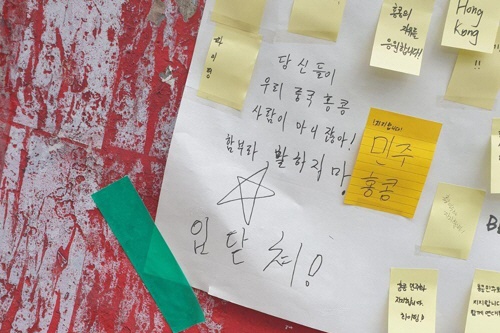 화이팅
홍콩의
자유를
응원합니다!
Hong
Kong
!!
당신들이
우리 중국 홍콩
사람이 아니잖아!
함부라 발하지마
입 닫쳐!
지지합니다!
민주
홍콩
홍콩 민주화
지지합니다
화이팅!
홍콩민주화
지지합니다
함께 연대